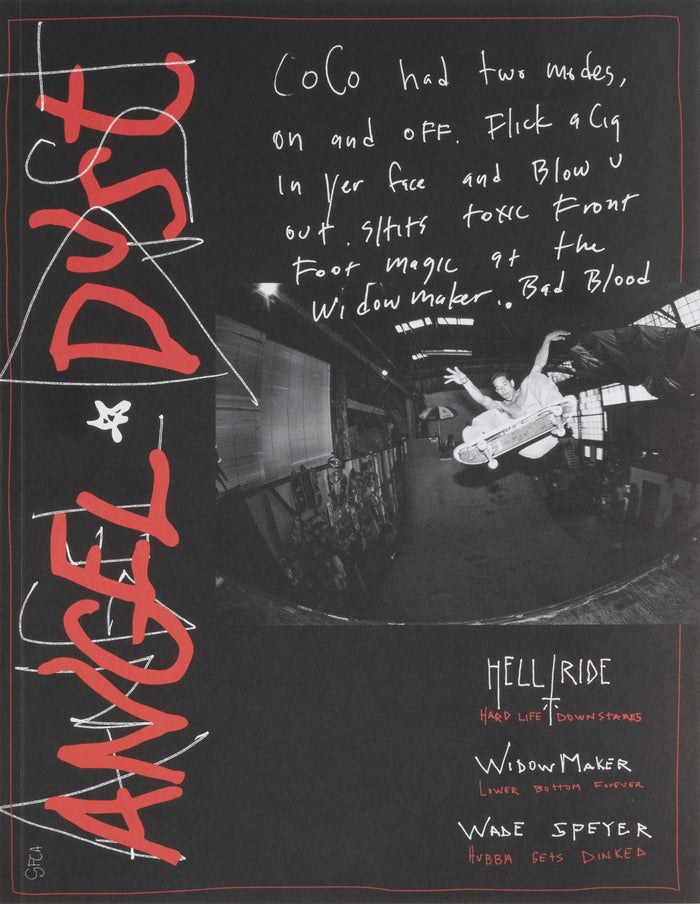 ANGEL DUST
CoCo had two modes,
on and off. Flick a Cig
in yer face and Blow u
out. S/tits toxic Front
Foot magic at the
Widowmaker.. Bad Blood
HELLRIDE
HARD LIFE DOWNSTARES
WIDOWMAKER
LOWER BOTTOM FOREVER
WADE SPEYER
HUBBA GETS DINKED
GFCA